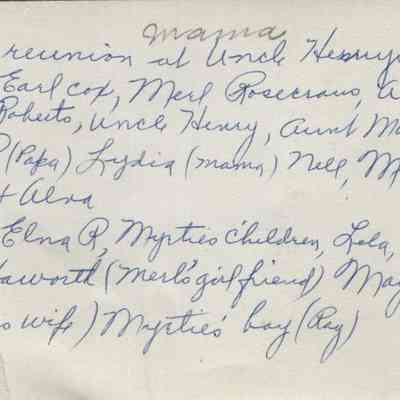 mama
reunion at Uncle Henry
Earl Cox, Merl Rosecrans, A
Roberts, Uncle Henry, Aunt Ma
(Papa) Lydia (mama) Nell, M
+ Alva
Elna R, Myrties Children, Lola,
aworth (Merl's girlfriend) May
s wife) Myrties' boy (Ray)